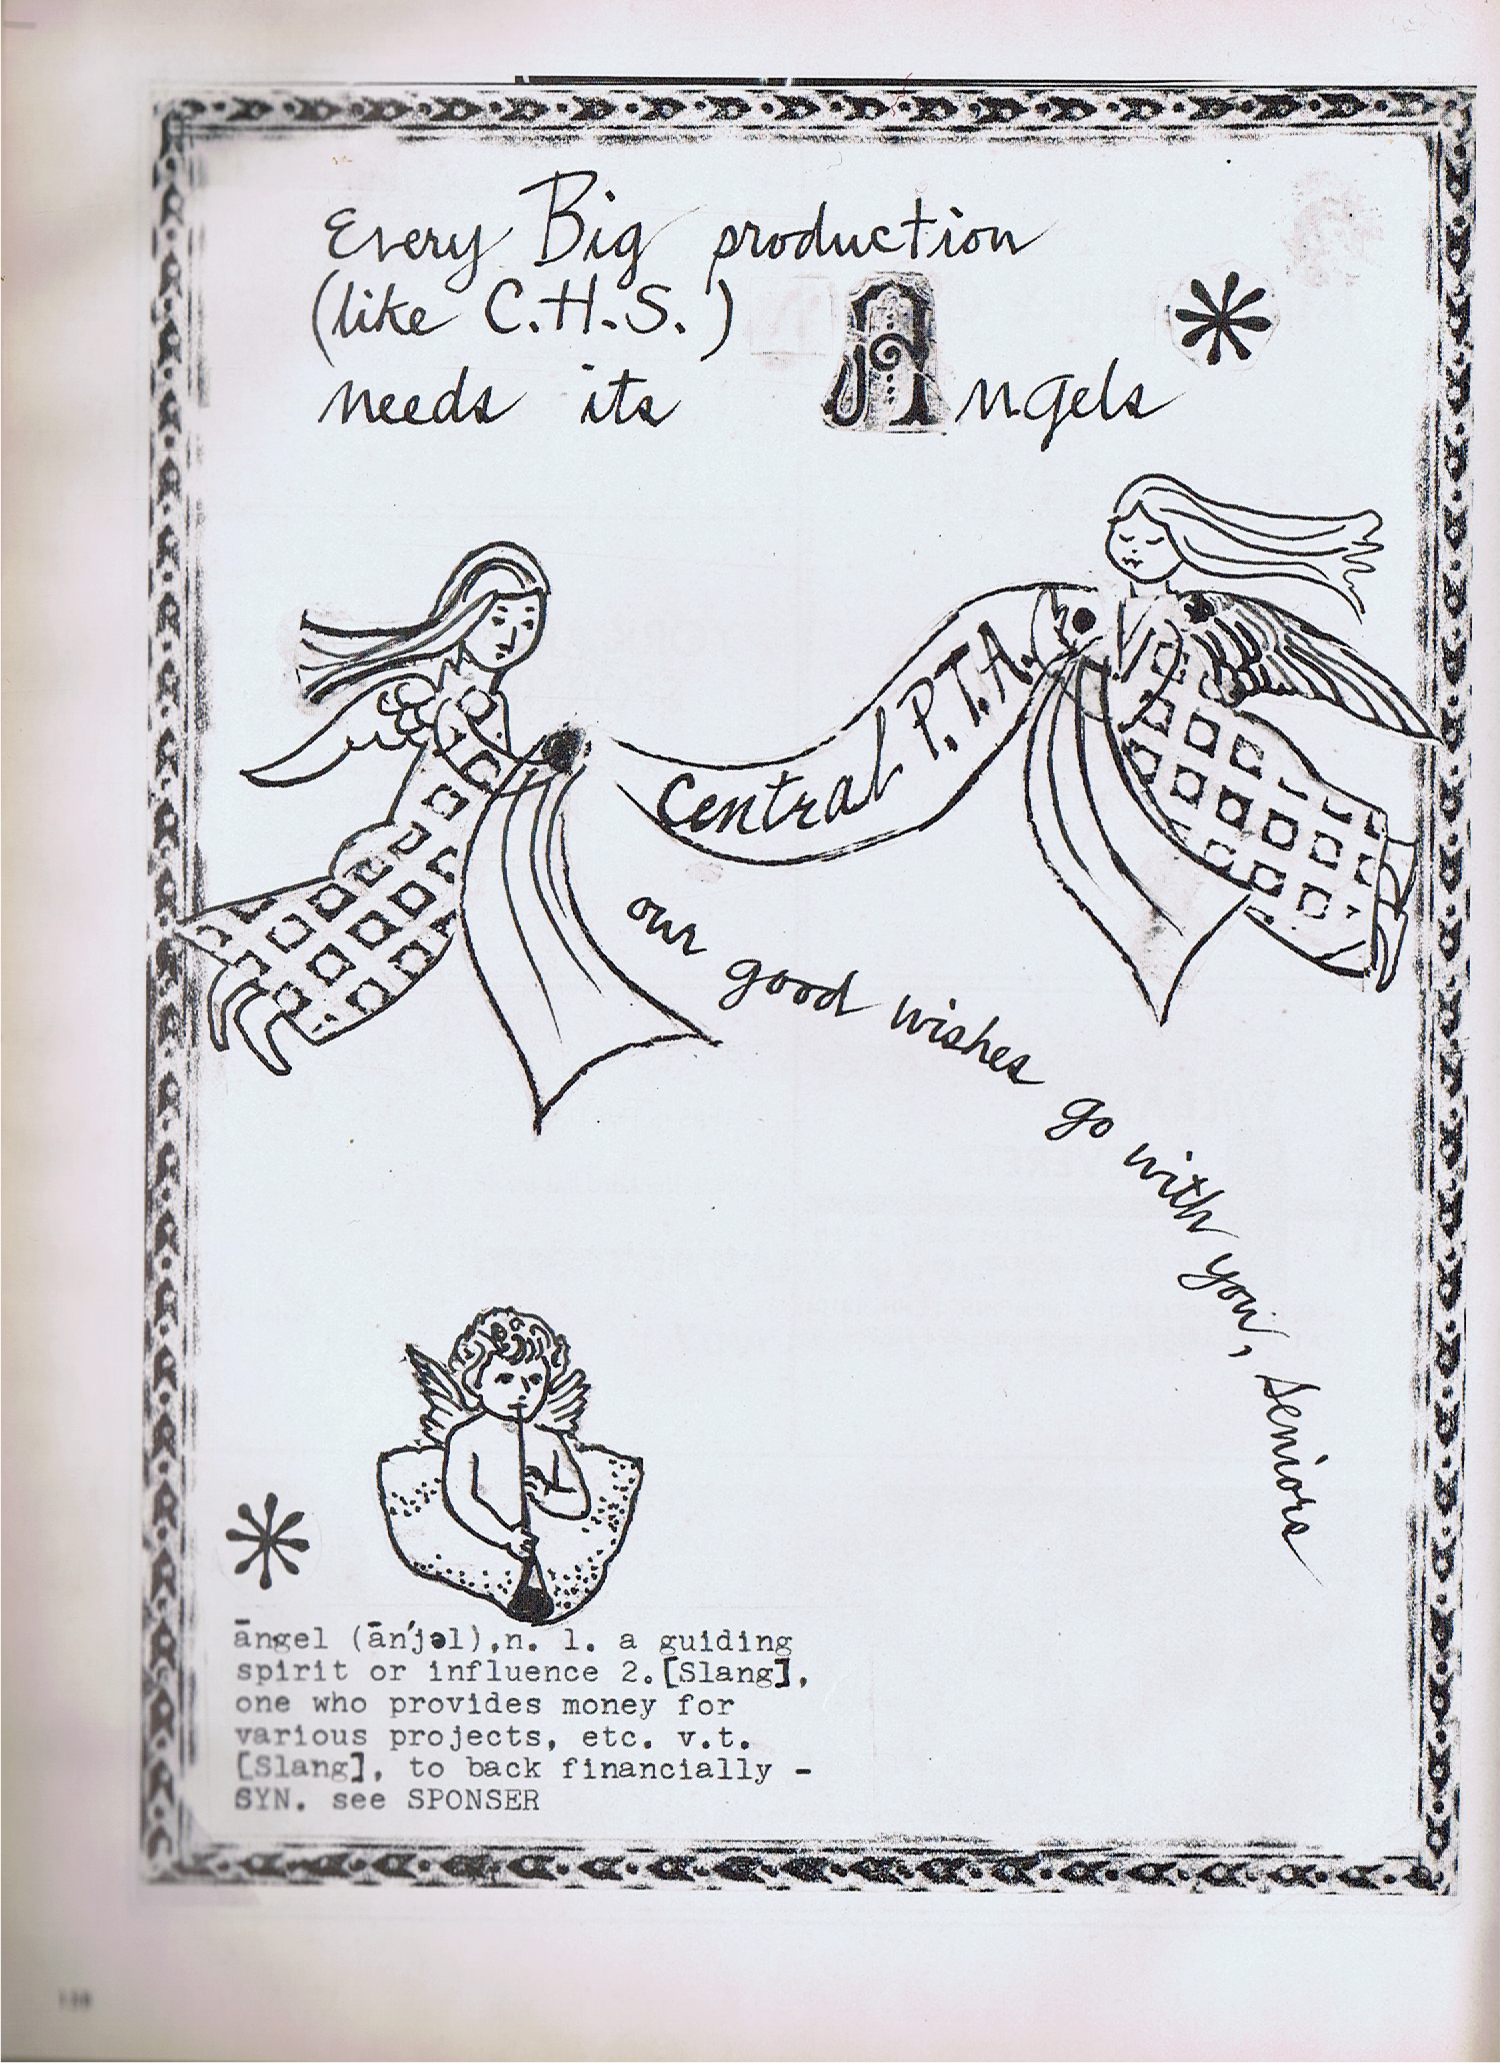 Every Big production
(like C.H.S.)
needs its Angels *
Central P.T.A.
our good wishes go with you, Seniors
*
āngel (ān'jəl),n. 1. a guiding
spirit or influence 2.[Slang],
one who provides money for
various projects, etc. v.t.
[Slang], to back financially -
SYN. see SPONSER